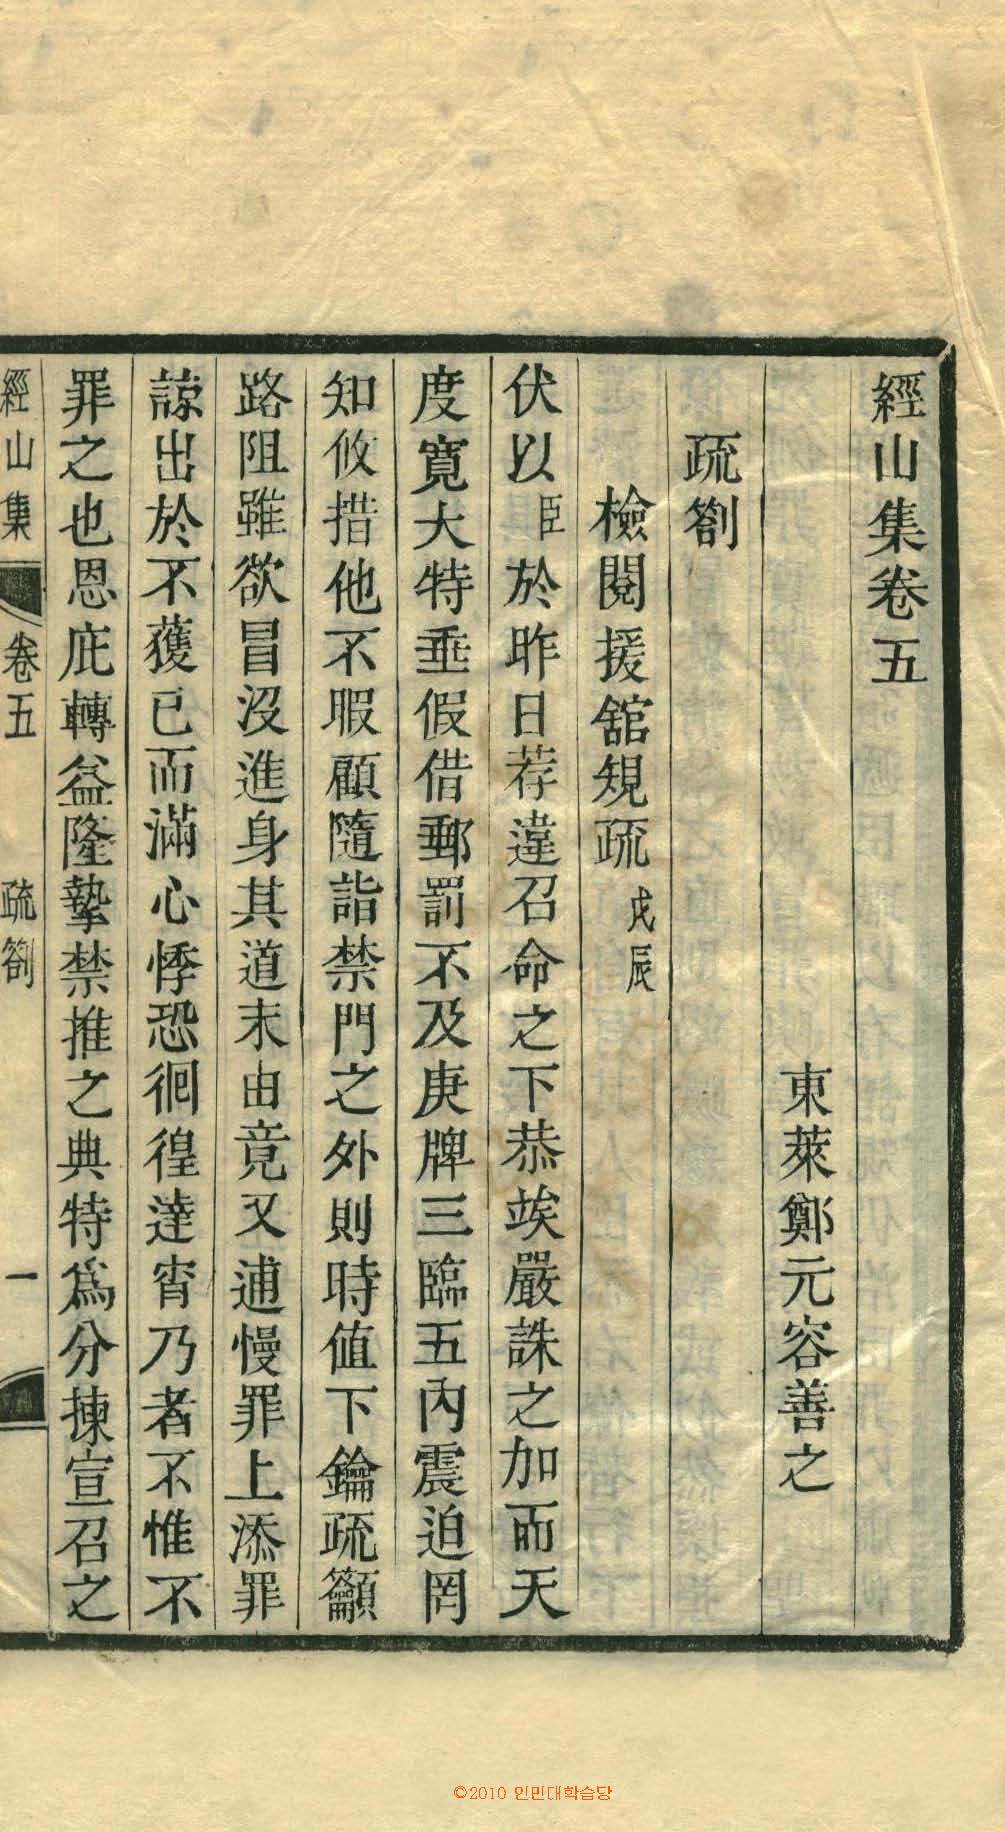 經山集卷五
東萊鄭元容善之
疏劄
檢閱援舘規疏 戊辰
伏以臣於昨日荐違召命之下恭竢嚴誅之加而天
度寬大特垂假借郵罰不及庚牌三臨五內震迫罔
知攸措他不暇顧隨詣禁門之外則時値下鑰疏籲
路阻雖欲冒沒進身其道末由竟又逋慢罪上添罪
諒出於不獲已而滿心悸恐徊徨達宵乃者不惟不
罪之也恩庇轉益隆摯禁推之典特爲分揀宣召之
經山集 卷五 疏劄 一
©2010 인민대학습당